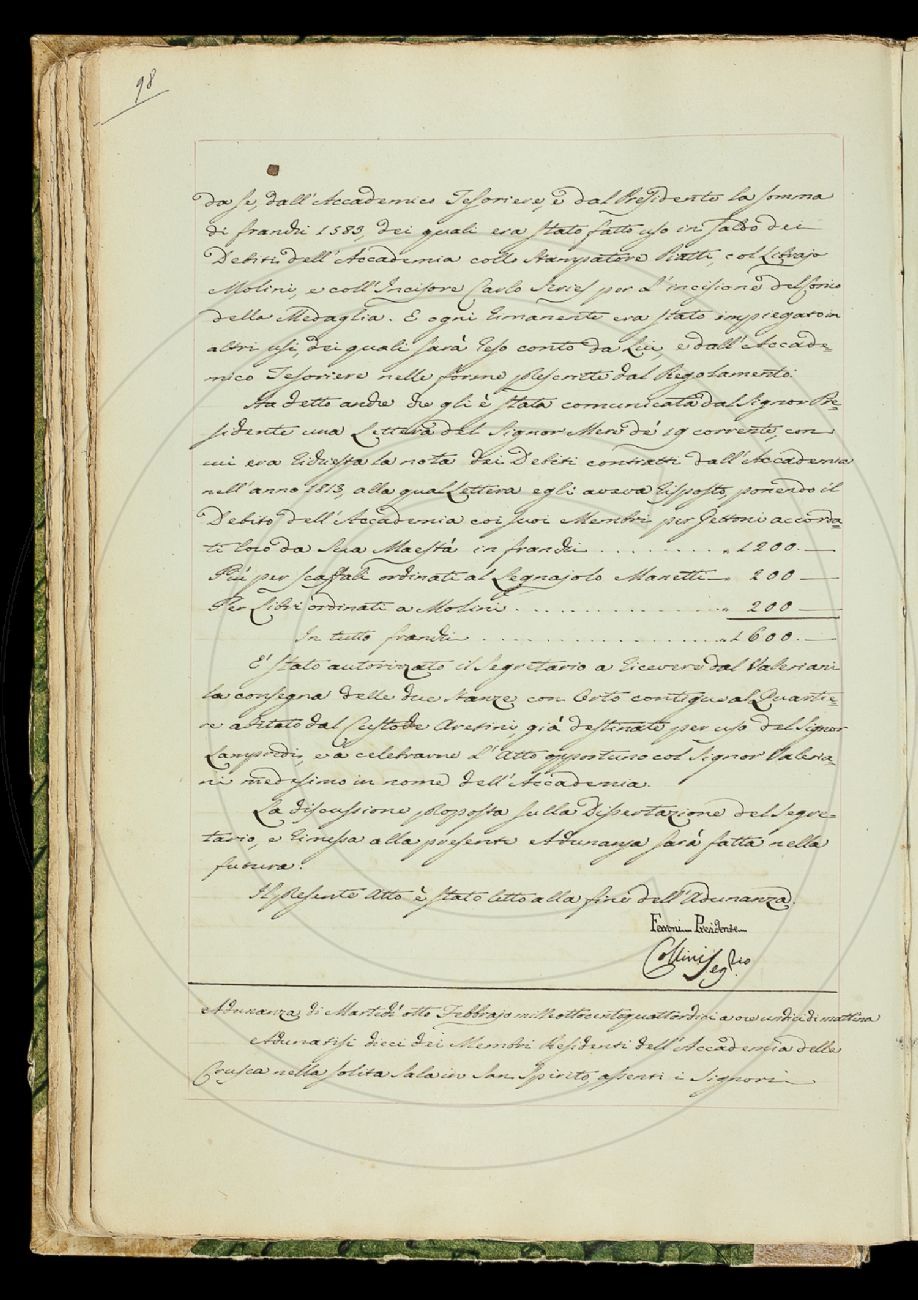 98
da se, dall'Accademico Tesoriere, e dal Presidente la somma
di franchi 1583, dei quali era stato fatto uso in saldo dei
Debiti dell'Accademia collo Stampatore Piatti, col Librajo
Molini, e coll'Incisore Carlo Siries per l'incisione del Conio
della Medaglia. E ogni rimanente era stato impiegato in
altri usi, dei quali sarà reso conto da Lui e dall'Accade=
mico Tesoriere nelle forme prescritte dal Regolamento.
Ha detto anche che gli è stata comunicata dal Signor Pre=
sidente una Lettera del Signor Mere de' 19 corrente, con
cui era richiesta la nota dei Debiti contratti dall'Accademia
nell'anno 1813, alla qual Lettera egli aveva risposto, ponendo il
Debito dell'Accademia coi suoi Membri per Gettoni accorda=
ti loro da Sua Maestà in franchi . . . . . . . . . . „ 1200. —
Più per Scaffali ordinati al Legnajolo Manetti „ 200 —
Per Libri ordinati a Molini . . . . . . . . . . . . . „ 200 —
In tutto franchi . . . . . . . . . . . . . . „ 1600. —
E' stato autorizzato il Segretario a ricevere dal Valeriani
la consegna delle due stanze con Orto contigue al Quartie=
re abitato dal Custode Aretini, già destinate per uso del Signor
Lampredi, e a celebrarne l'Atto opportuno col Signor Valeria=
ni medesimo in nome dell'Accademia.
La discussione proposta sulla Dissertazione del Segre=
tario, e rimessa alla presente Adunanza sarà fatta nella
futura.
Il presente Atto è stato letto alla fine dell'Adunanza.
Ferroni Presidente
Collini Seg.rio
Adunanza di Martedì otto Febbrajo milleottocentoquattordici a ore undici di mattina
Adunatisi dieci dei Membri Residenti dell'Accademia della
Crusca nella solita Sala in San Spirito, assenti i Signori